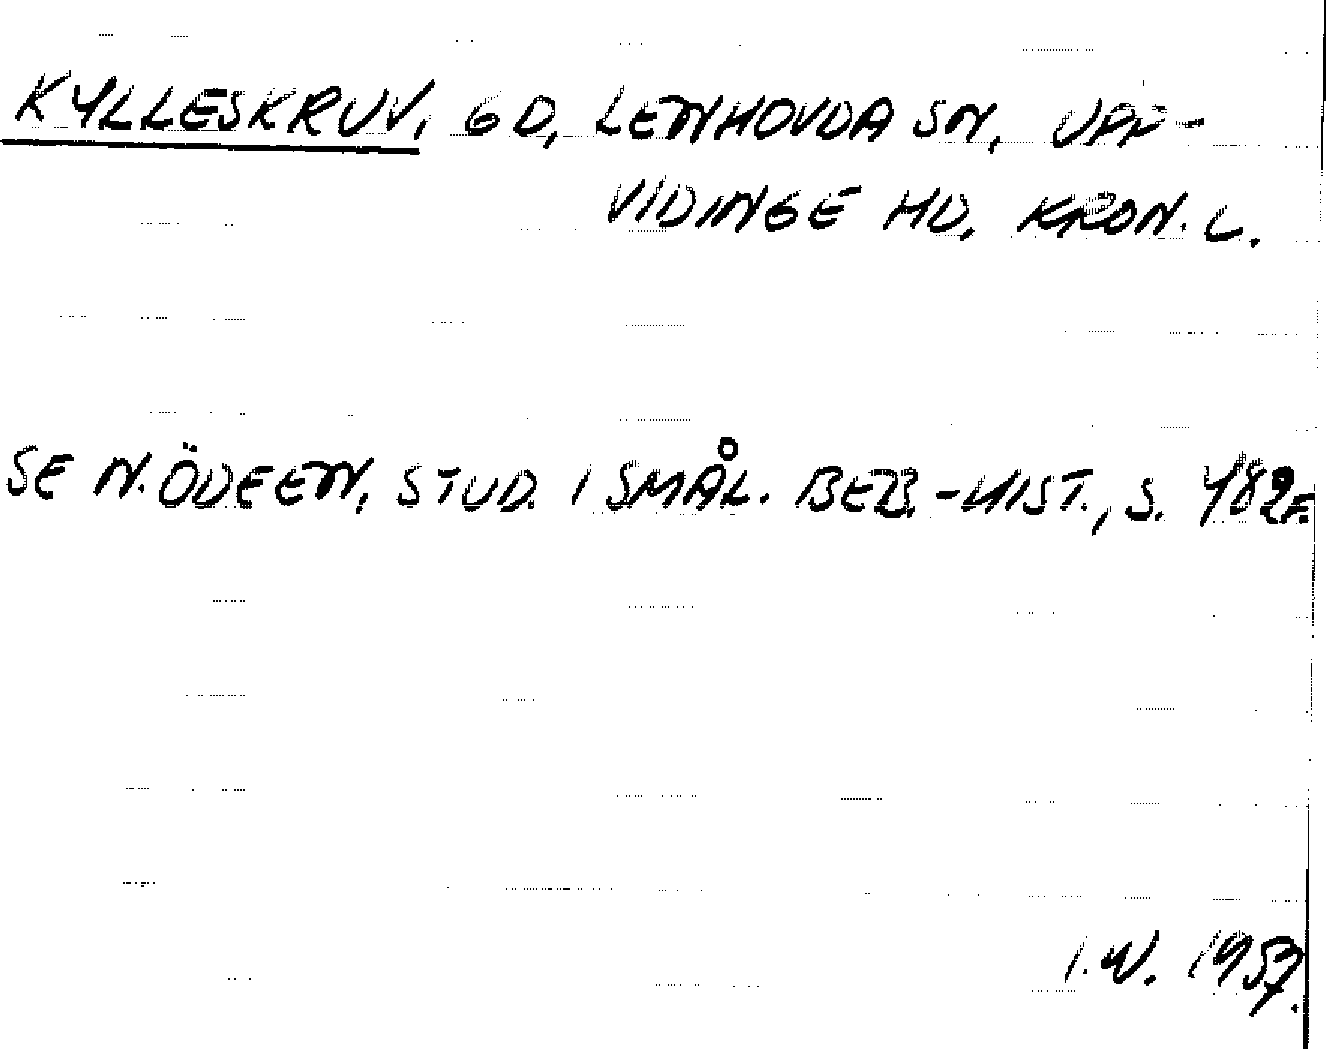 KYLLESKRUV, GD, LENHOVDA SN, UPP-
VIDINGE HD, KRON. L.
SE N. ÖDEEN, STUD. I SMÅL. BEB.-HIST., S. 482F.
I.W. 1957.